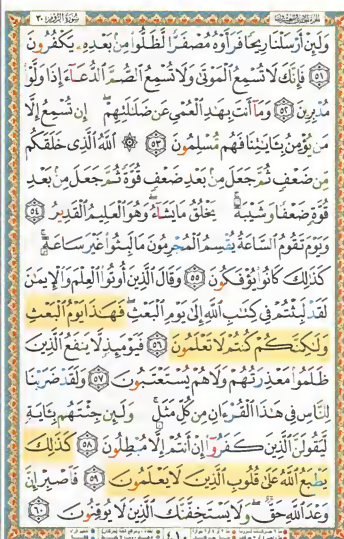 الجزء الحادي والعشرون سورة الروم ٣٠
وَلَئِنْ أَرْسَلْنَا رِيحًا فَرَأَوْهُ مُصْفَرًّا لَّظَلُّوا مِنۢ بَعْدِهِۦ يَكْفُرُونَ
﴿٥١﴾ فَإِنَّكَ لَا تُسْمِعُ ٱلْمَوْتَىٰ وَلَا تُسْمِعُ ٱلصُّمَّ ٱلدُّعَآءَ إِذَا وَلَّوْا۟
مُدْبِرِينَ ﴿٥٢﴾ وَمَآ أَنتَ بِهَٰدِ ٱلْعُمْىِ عَن ضَلَٰلَتِهِمْ ۖ إِن تُسْمِعُ إِلَّا
مَن يُؤْمِنُ بِـَٔايَٰتِنَا فَهُم مُّسْلِمُونَ ﴿٥٣﴾ ۞ ٱللَّهُ ٱلَّذِى خَلَقَكُم
مِّن ضَعْفٍ ثُمَّ جَعَلَ مِنۢ بَعْدِ ضَعْفٍ قُوَّةً ثُمَّ جَعَلَ مِنۢ بَعْدِ
قُوَّةٍ ضَعْفًا وَشَيْبَةً ۚ يَخْلُقُ مَا يَشَآءُ ۖ وَهُوَ ٱلْعَلِيمُ ٱلْقَدِيرُ ﴿٥٤﴾
وَيَوْمَ تَقُومُ ٱلسَّاعَةُ يُقْسِمُ ٱلْمُجْرِمُونَ مَا لَبِثُوا۟ غَيْرَ سَاعَةٍ ۚ
كَذَٰلِكَ كَانُوا۟ يُؤْفَكُونَ ﴿٥٥﴾ وَقَالَ ٱلَّذِينَ أُوتُوا۟ ٱلْعِلْمَ وَٱلْإِيمَٰنَ
لَقَدْ لَبِثْتُمْ فِى كِتَٰبِ ٱللَّهِ إِلَىٰ يَوْمِ ٱلْبَعْثِ ۖ فَهَٰذَا يَوْمُ ٱلْبَعْثِ
وَلَٰكِنَّكُمْ كُنتُمْ لَا تَعْلَمُونَ ﴿٥٦﴾ فَيَوْمَئِذٍ لَّا يَنفَعُ ٱلَّذِينَ
ظَلَمُوا۟ مَعْذِرَتُهُمْ وَلَا هُمْ يُسْتَعْتَبُونَ ﴿٥٧﴾ وَلَقَدْ ضَرَبْنَا
لِلنَّاسِ فِى هَٰذَا ٱلْقُرْءَانِ مِن كُلِّ مَثَلٍ ۚ وَلَئِن جِئْتَهُم بِـَٔايَةٍ
لَّيَقُولَنَّ ٱلَّذِينَ كَفَرُوٓا۟ إِنْ أَنتُمْ إِلَّا مُبْطِلُونَ ﴿٥٨﴾ كَذَٰلِكَ
يَطْبَعُ ٱللَّهُ عَلَىٰ قُلُوبِ ٱلَّذِينَ لَا يَعْلَمُونَ ﴿٥٩﴾ فَٱصْبِرْ إِنَّ
وَعْدَ ٱللَّهِ حَقٌّ ۖ وَلَا يَسْتَخِفَّنَّكَ ٱلَّذِينَ لَا يُوقِنُونَ ﴿٦٠﴾
٤١٠